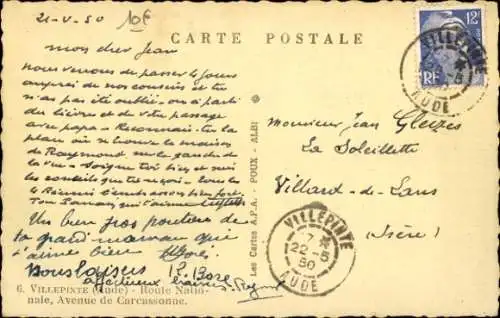 21-V-50
10F
CARTE POSTALE
12F
RF
VILLEPINTE
AUDE
mon cher Jean
nous venons de passer 4 jours
auprès de nos cousins et tu
n'as pas été oublié - on a parlé
des lièvres et de votre passage
avec papa - Reconnais-tu la
place où se trouve la maison
de Raymond sur la gauche de
la vue - Soigne toi bien et suis
les conseils que tu reçois - tous
te embrassons bien fort
Ton qui t'aime
Un bien gros de
ta grand maman que
t'aime bien
affectueux
Monsieur Jean Gleizes
La Soleillette
Villard-de-Lans
(Isère)
VILLEPINTE
7 *
22-5
50
AUDE
Les Cartes A.P.A. - POUX - ALBI
6. VILLEPINTE (Aude) - Route Natio-
nale, Avenue de Carcassonne.